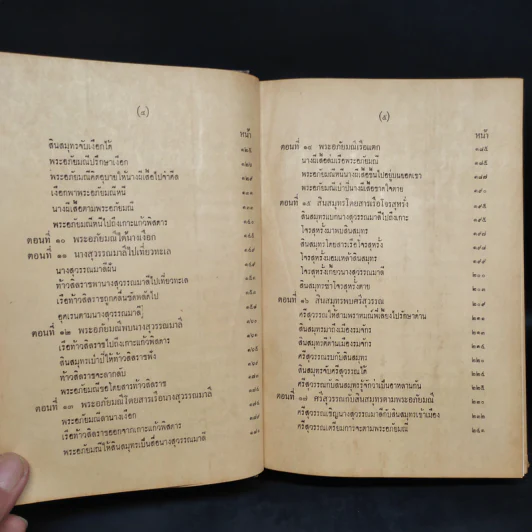 (๔)
หน้า
สินสมุทรจับเงือกได้ ๑๒๕
พระอภัยมณีปรึกษาเงือก ๑๒๖
พระอภัยมณีคิดอุบายให้นางผีเสื้อไปจำศีล
เงือกพาพระอภัยมณีหนี
นางผีเสื้อตามพระอภัยมณี
พระอภัยมณีหนีไปถึงเกาะแก้วพิสดาร
ตอนที่ ๑๐ พระอภัยมณีได้นางเงือก
ตอนที่ ๑๑ นางสุวรรณมาลีไปเที่ยวทะเล
นางสุวรรณมาลีฝัน
ท้าวสิลราชพานางสุวรรณมาลีไปเที่ยวทะเล
เรือท้าวสิลราชถูกคลื่นซัดพลัดไป
อุศเรนตามนางสุวรรณมาลี
ตอนที่ ๑๒ พระอภัยมณีพบนางสุวรรณมาลี
เรือท้าวสิลราชไปถึงเกาะแก้วพิสดาร
สินสมุทรเป่าปี่ให้ท้าวสิลราชฟัง
ท้าวสิลราชจะลากลับ
พระอภัยมณีขอโดยสารท้าวสิลราช
ตอนที่ ๑๓ พระอภัยมณีโดยสารเรือนางสุวรรณมาลี
พระอภัยมณีลานางเงือก
เรือท้าวสิลราชออกจากเกาะแก้วพิสดาร
พระอภัยมณีให้สินสมุทรเป็นสื่อนางสุวรรณมาลี
(๕)
หน้า
ตอนที่ ๑๔ พระอภัยมณีเรือแตก ๑๘๕
นางผีเสื้อล่มเรือพระอภัยมณี ๑๘๕
พระอภัยมณีหนีนางผีเสื้อขึ้นไปอยู่บนยอดเขา ๑๘๗
พระอภัยมณีเป่าปี่นางผีเสื้อขาดใจตาย ๑๙๐
ตอนที่ ๑๕ สินสมุทรโดยสารเรือโจรสุหรั่ง ๑๙๕
สินสมุทรแบกนางสุวรรณมาลีไปถึงเกาะ ๑๙๕
โจรสุหรั่งมาพบสินสมุทร
สินสมุทรโดยสารเรือโจรสุหรั่ง
โจรสุหรั่งมอมเหล้าสินสมุทร
โจรสุหรั่งเกี้ยวนางสุวรรณมาลี ๒๐๐
สินสมุทรฆ่าโจรสุหรั่ง ๒๐๔
ตอนที่ ๑๖ สินสมุทรพบศรีสุวรรณ ๒๐๙
ศรีสุวรรณให้สามพราหมณ์พี่เลี้ยงไปรักษาด่าน ๒๐๙
สินสมุทรมาถึงเมืองรมจักร
สินสมุทรตีด่านเมืองรมจักร
ศรีสุวรรณรบกับสินสมุทร
สินสมุทรจับศรีสุวรรณได้
ศรีสุวรรณกับสินสมุทรรู้จักว่าเป็นอาหลานกัน
ตอนที่ ๑๗ ศรีสุวรรณกับสินสมุทรตามพระอภัยมณี
ศรีสุวรรณเชิญนางสุวรรณมาลีกับสินสมุทรเข้าเมือง
ศรีสุวรรณเตรียมการจะตามพระอภัยมณี ๒๔๑